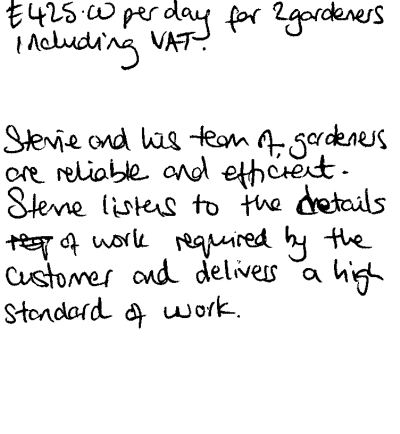 £425.00 per day for 2 gardeners
including VAT.
Stevie and his team of gardeners
are reliable and efficient.
Stevie listens to the details
of work required by the
customer and delivers a high
standard of work.